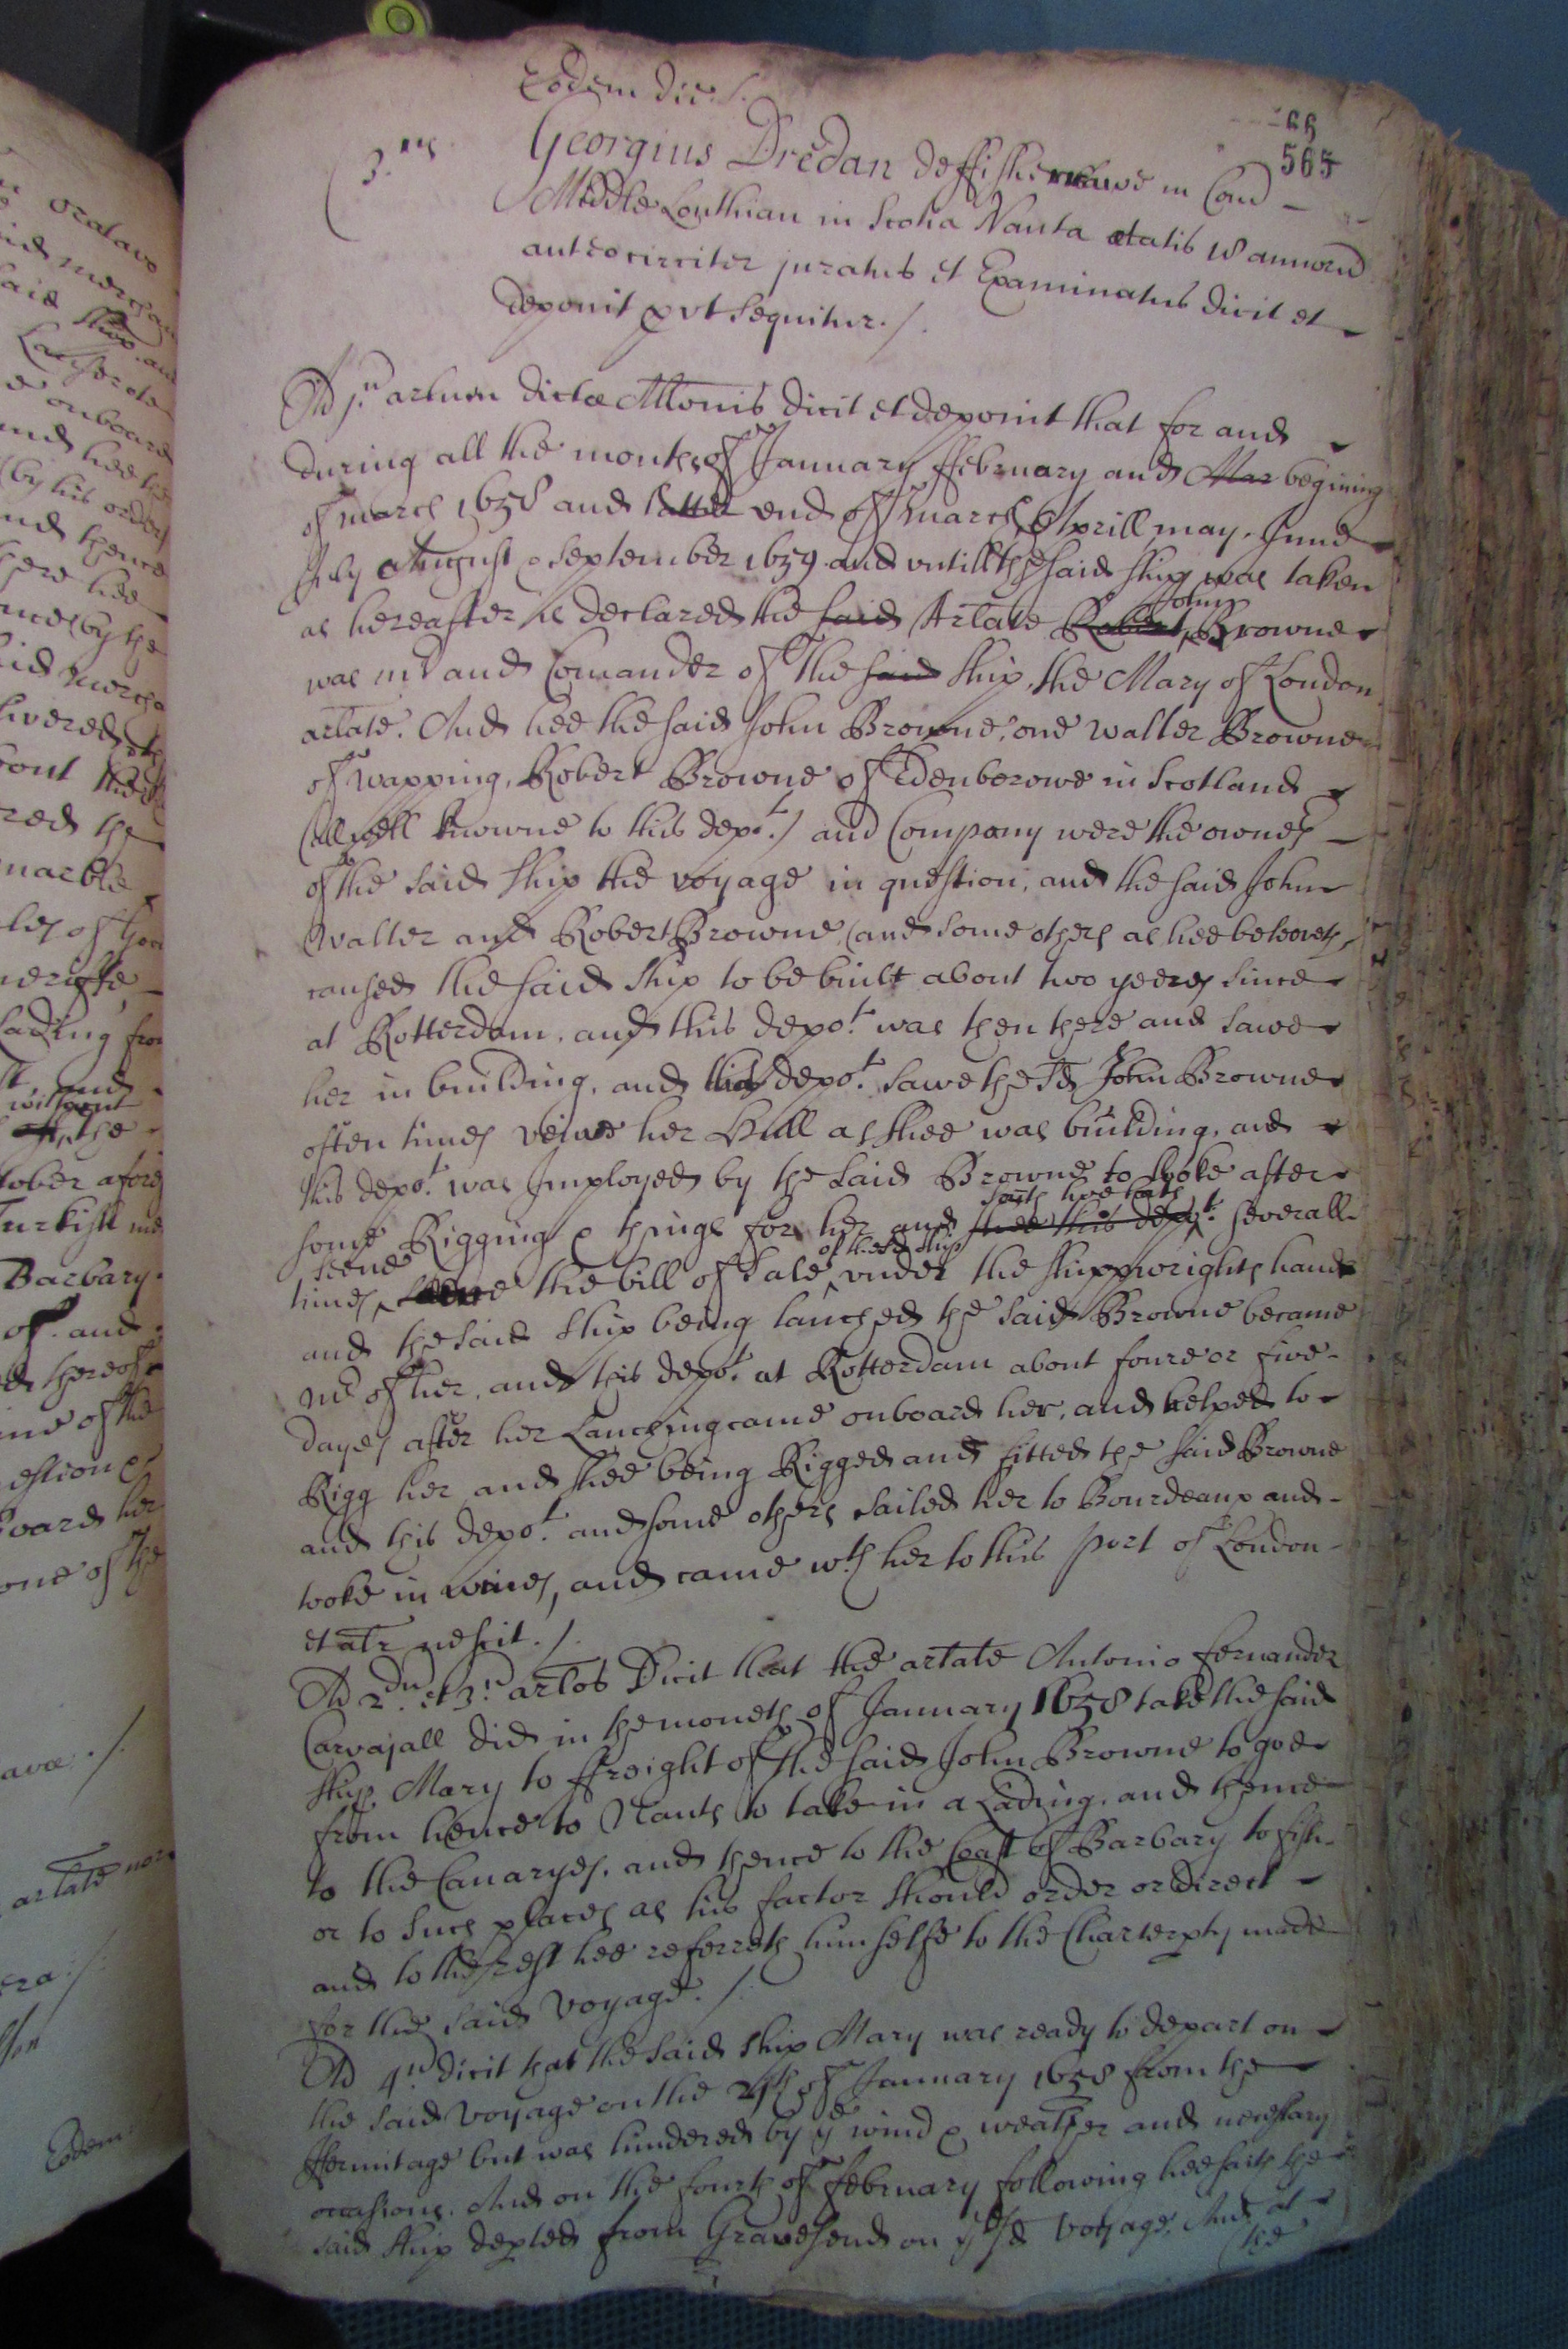 Eodem die ./.
66
565
3.us
Georgius Dredan de ffisherrawe in Com
Middle Louthian in Scotia Nauta ætatis 18 annorum
aut eo circiter juratus et Examinatus dicit et
deponit put sequitur ./.
Ad j.um artlum dictæ Allonis dicit et deponit that for and
during all the months of January ffebruary and Mar begining
of march 1658 and latter end of march Aprill may June
July August & September 1659 and untill the said ship was taken
as hereafter is declared the said Artlate Robert John Browne
was mr and Comander of the said ship the Mary of London
artlate. And hee the said John Browne, one Walter Browne
of Wapping, Robert Browne of Edenborowe in Scotland
(all well knowne to this depot.) and Company were the owners
of the said ship the voyage in question, and the said John
Walter and Robert Browne (and some others as hee beleeveth)
caused the said ship to be built about two yeeres since
at Rotterdam, and this depot. was then there and sawe
her in building, and this depot. sawe the sd John Browne
often times veiwe her Hull as shee was building, and
this depot. was Imployed by the said Browne to looke after
some Rigging & things for her and shee this depot. saith hee hath severall
times seene the bill of sale of the sd ship under the shippwrights hand
and the said ship being lanched the said Browne became
mr of her, and this depot. at Rotterdam about foure or five
dayes after her Lanching came onboard her, and helped to
Rigg her and shee being Rigged and fitted the said Browne
and this depot. and some others sailed her to Bourdeaux and
tooke in wines, and came wth her to this port of London
et alr nescit ./.
Ad 2.dum et 3.um artlos Dicit that the artlate Antonio fernandez
Carvajall did in the moneth of January 1658 take the said
ship Mary to ffreight of the said John Browne to goe
from hence to Nants to take in a Lading, and thence
to the Canaryes, and thence to the Coast of Barbary to fish
or to such places as his factor should order or direct
and to the rest hee referreth himselfe to the Charterpty made
for the said voyage ./.
Ad 4.um dicit that the said ship Mary was ready to depart on
the said voyage on the 24th of January 1658 from the
Hermitage but was hindered by ye wind & weather and necessary
occasions. And on the fourth of february following hee saith the
said ship depted from Gravesend on ye sd voyage. And at
the